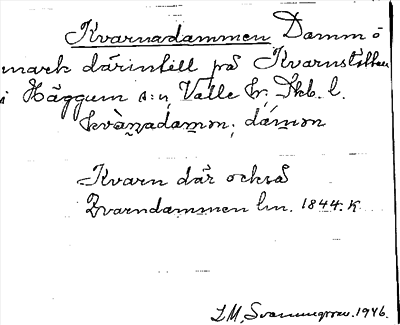 Kvarnadammen Damm o
mark därintill på Kvarnstället
i Häggum s:n, Valle hr. Skb. l.
kvàṇadamən; dámən
Kvarn där också
Kvarndammen lm. 1844. K
I.M. Svanungsson. 1946.